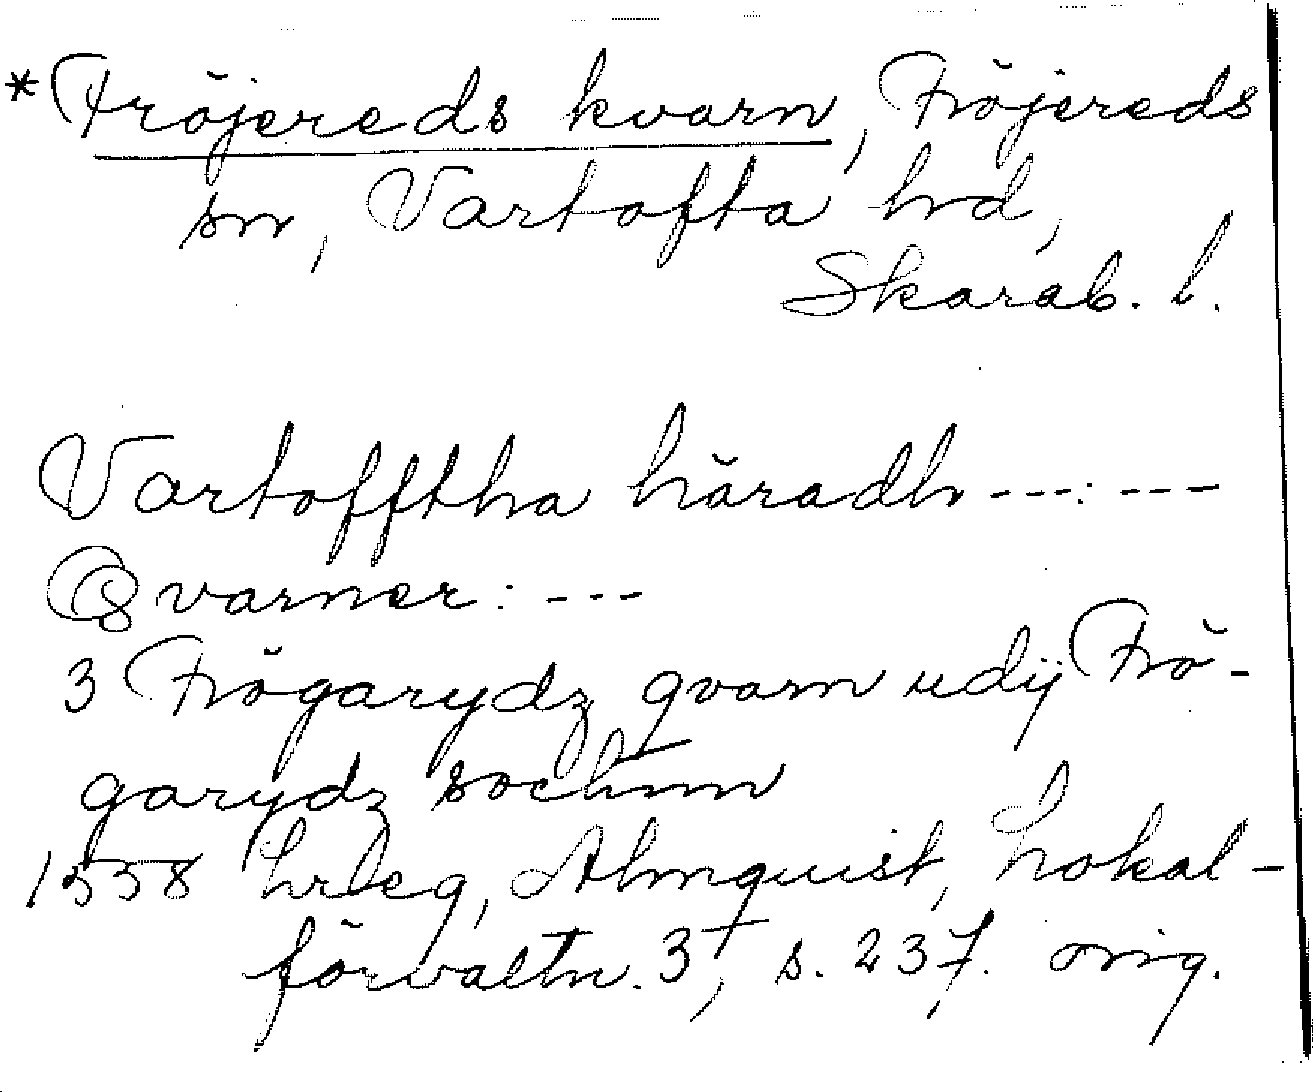 *Fröjereds kvarn, Fröjereds
sn, Vartofta hd,
Skarab. l.
Vartofftha häradh ---: ---
Qvarner: ---
3 Frögarydz qvarn udij Frö-
garydz sochnn
1558 Lrleg, Almquist, Lokal-
förvaltn. 3, s. 237. orig.